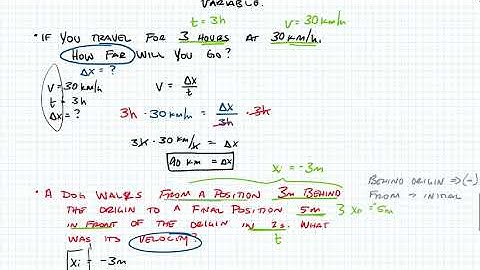 VARIABLE.
t = 3h    v = 30 km/h
• IF YOU TRAVEL FOR 3 HOURS AT 30 km/h,
HOW FAR WILL YOU GO?
Δx = ?
v = 30 km/h    v = Δx / t
t = 3h
Δx = ?    3h · 30 km/h = Δx / 3h · 3h
3h · 30 km/h = Δx
90 km = Δx
xi = -3m
• A DOG WALKS FROM A POSITION 3m BEHIND    BEHIND ORIGIN ⇒ (-)
THE ORIGIN TO A FINAL POSITION 5m    FROM → INITIAL
IN FRONT OF THE ORIGIN IN 2s. WHAT
t
WAS ITS VELOCITY?
xi = -3m